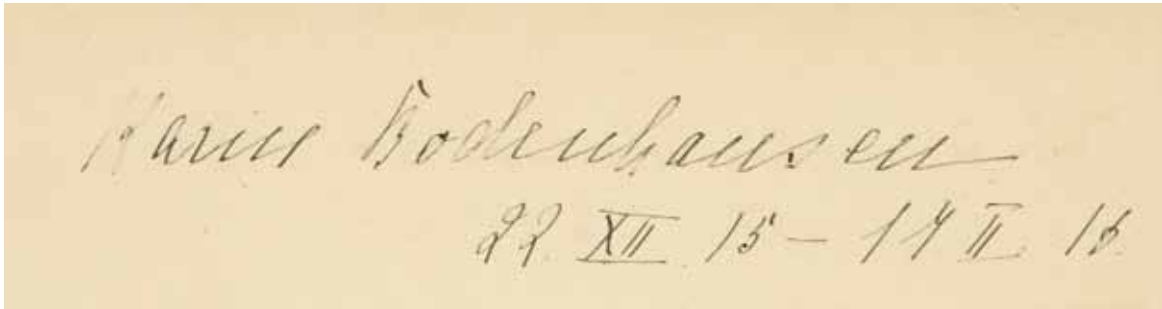 Karin Bodenhausen
22. XII. 15 – 14 II 16.